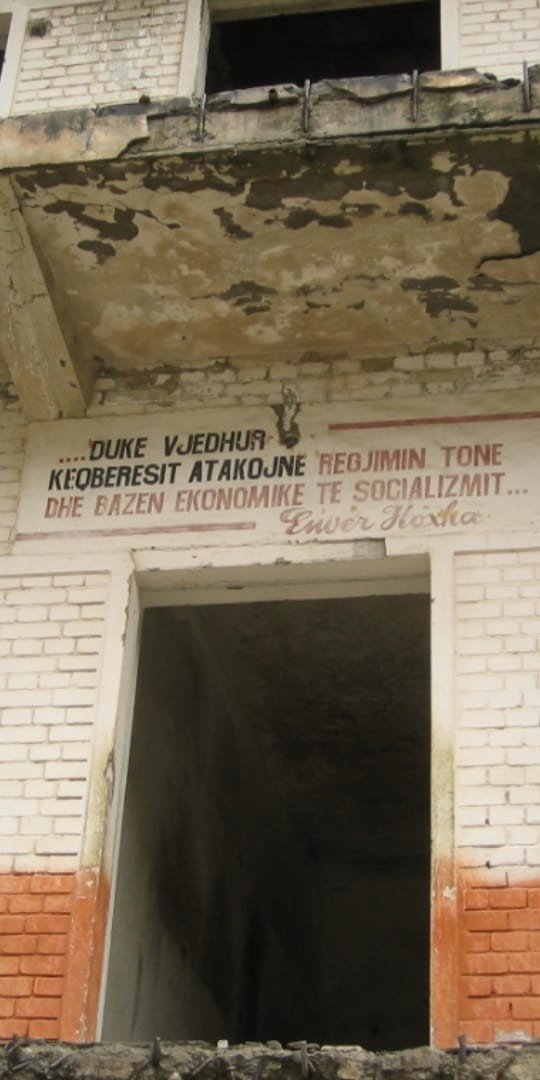 ....DUKE VJEDHUR
KEQBERESIT ATAKOJNE REGJIMIN TONE
DHE BAZEN EKONOMIKE TE SOCIALIZMIT...
Enver Hoxha